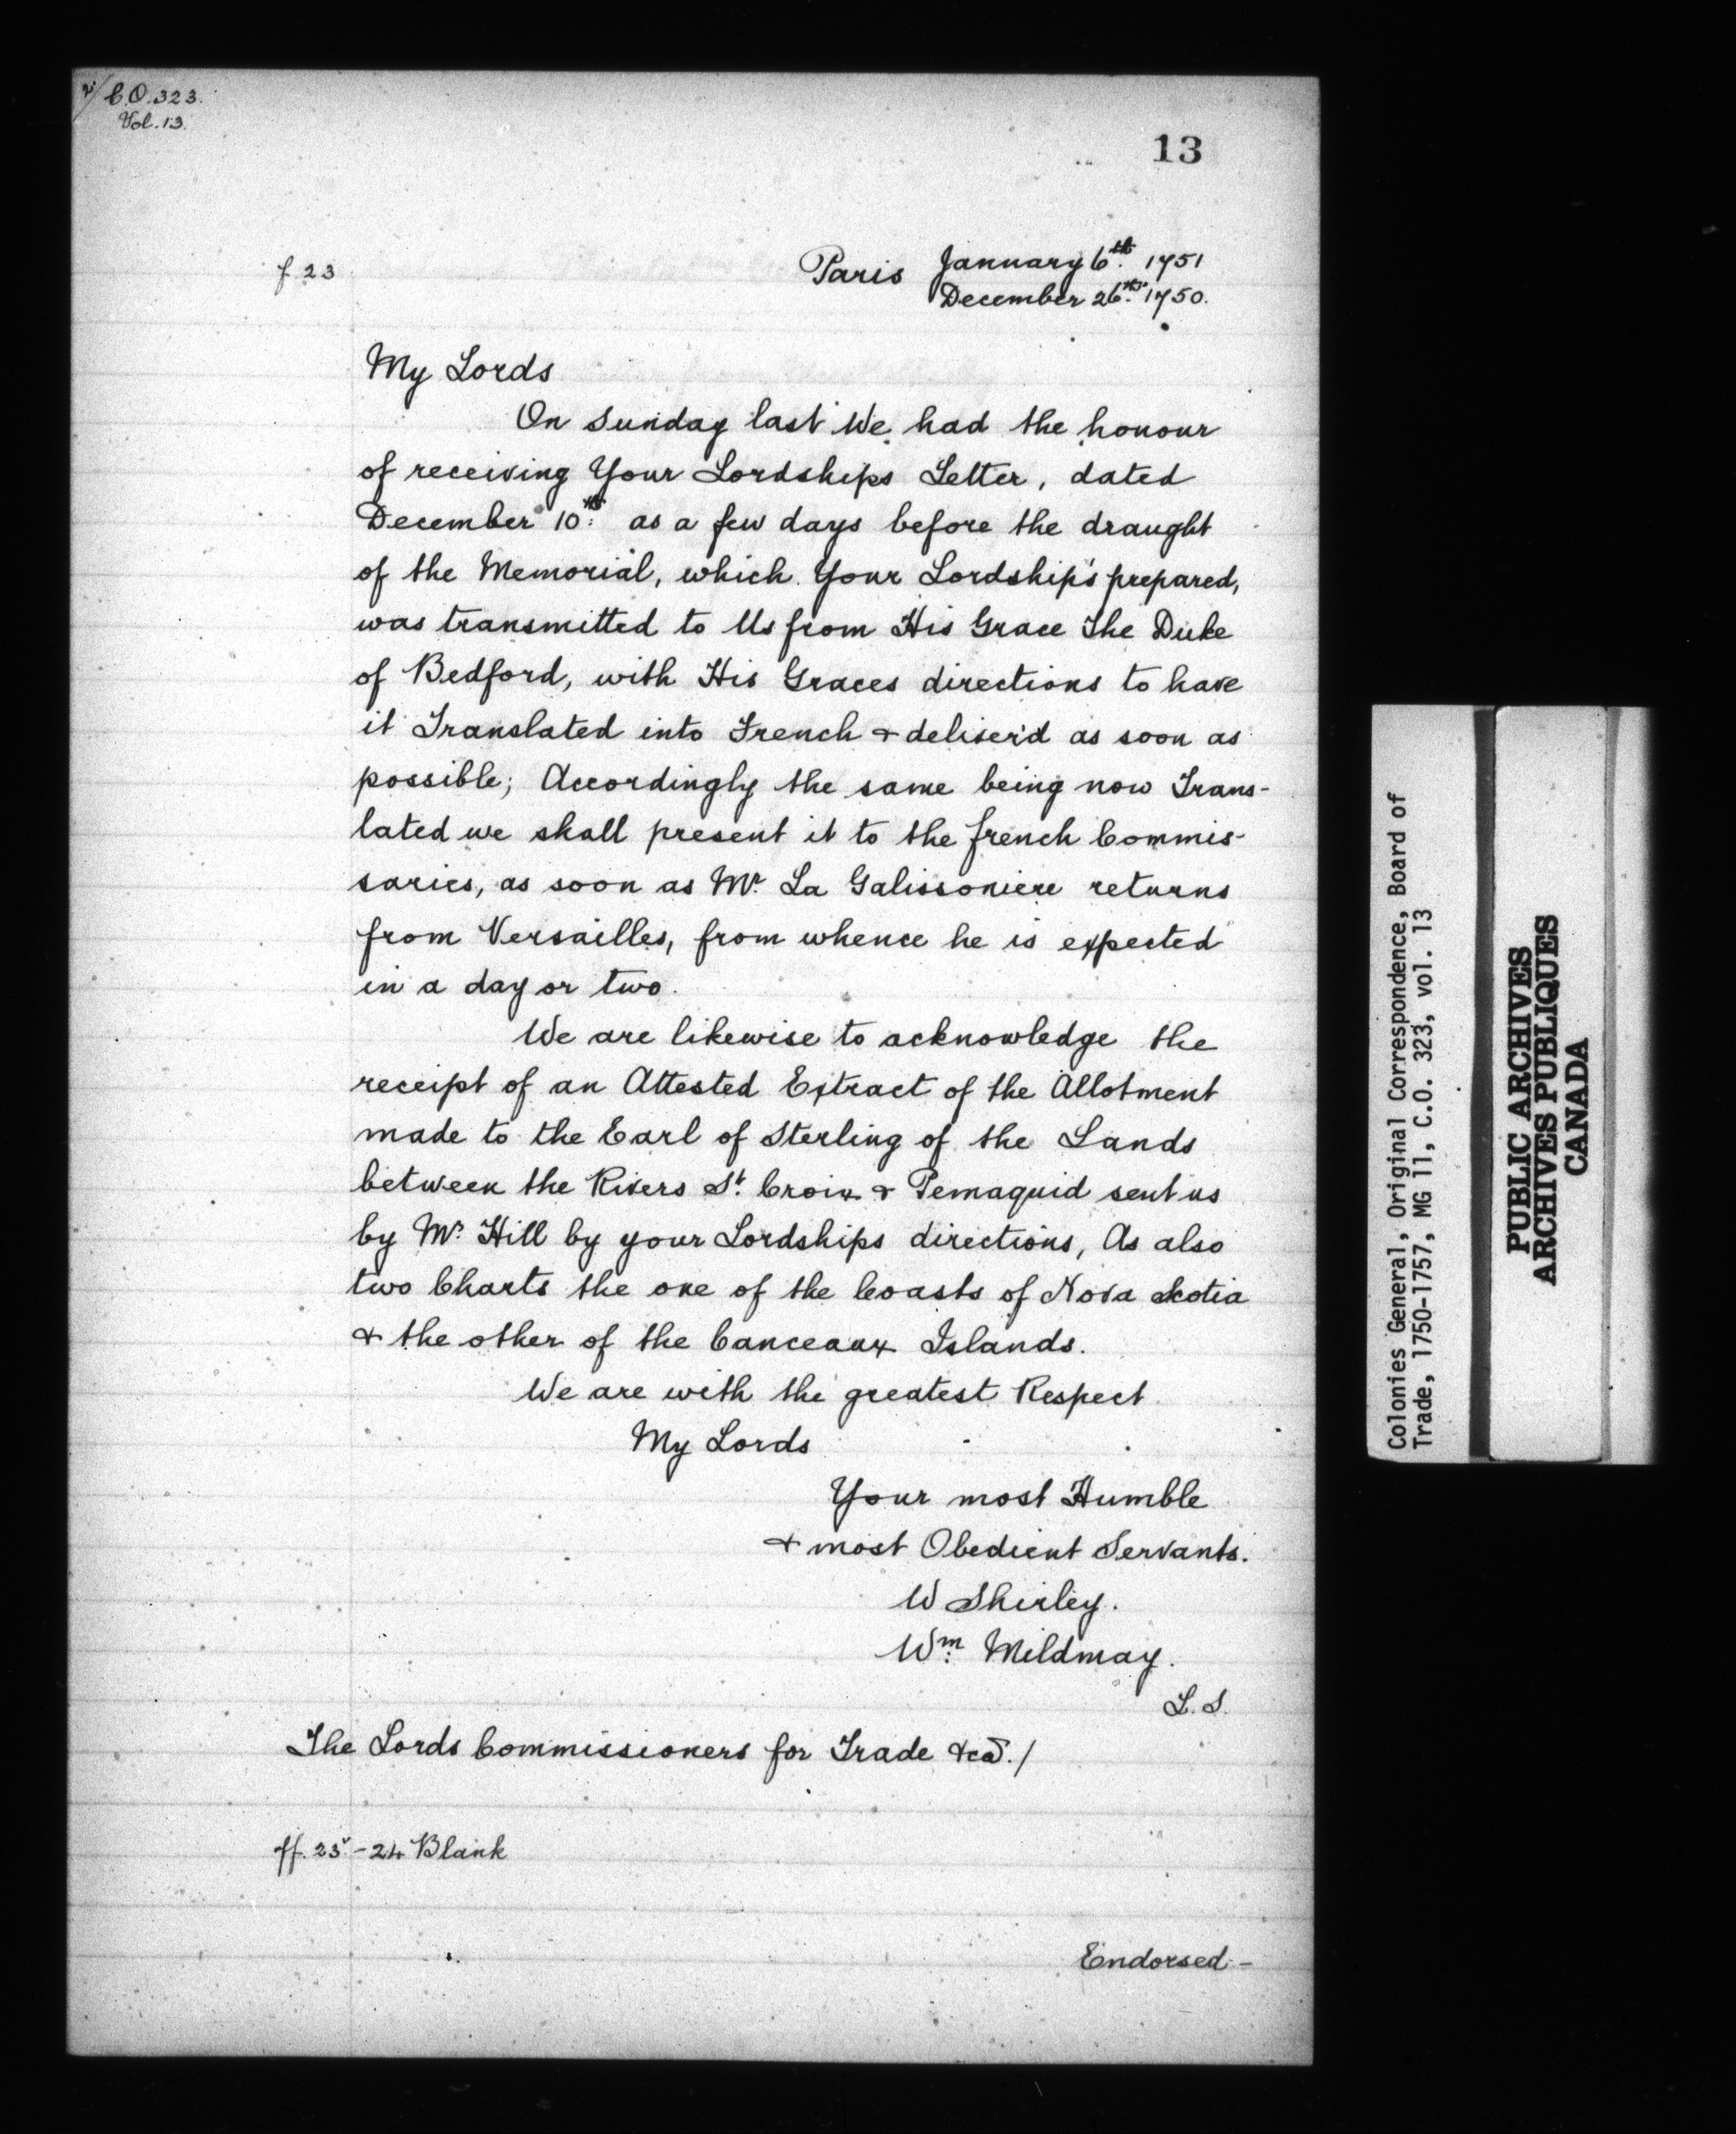 C.O. 323.
Vol. 13.
13
f. 23
Paris January 6th. 1751
December 26th. 1750.
My Lords
On Sunday last We had the honour
of receiving Your Lordships Letter, dated
December 10th: as a few days before the draught
of the Memorial, which Your Lordships prepared,
was transmitted to Us from His Grace The Duke
of Bedford, with His Graces directions to have
it Translated into French & deliver'd as soon as
possible; Accordingly the same being now Trans-
lated we shall present it to the french Commis-
saries, as soon as Mr. La Galissoniere returns
from Versailles, from whence he is expected
in a day or two.
We are likewise to acknowledge the
receipt of an Attested Extract of the Allotment
made to the Earl of Sterling of the Lands
between the Rivers St. Croix & Pemaquid sent us
by Mr. Hill by your Lordships directions, As also
two Charts the one of the Coasts of Nova Scotia
& the other of the Canceaux Islands.
We are with the greatest Respect
My Lords
Your most Humble
& most Obedient Servants.
W Shirley.
Wm: Mildmay.
L.S.
The Lords Commissioners for Trade &ca./
ff. 23v-24 Blank
Endorsed -
Colonies General, Original Correspondence, Board of
Trade, 1750-1757, MG 11, C.O. 323, vol. 13
PUBLIC ARCHIVES
ARCHIVES PUBLIQUES
CANADA